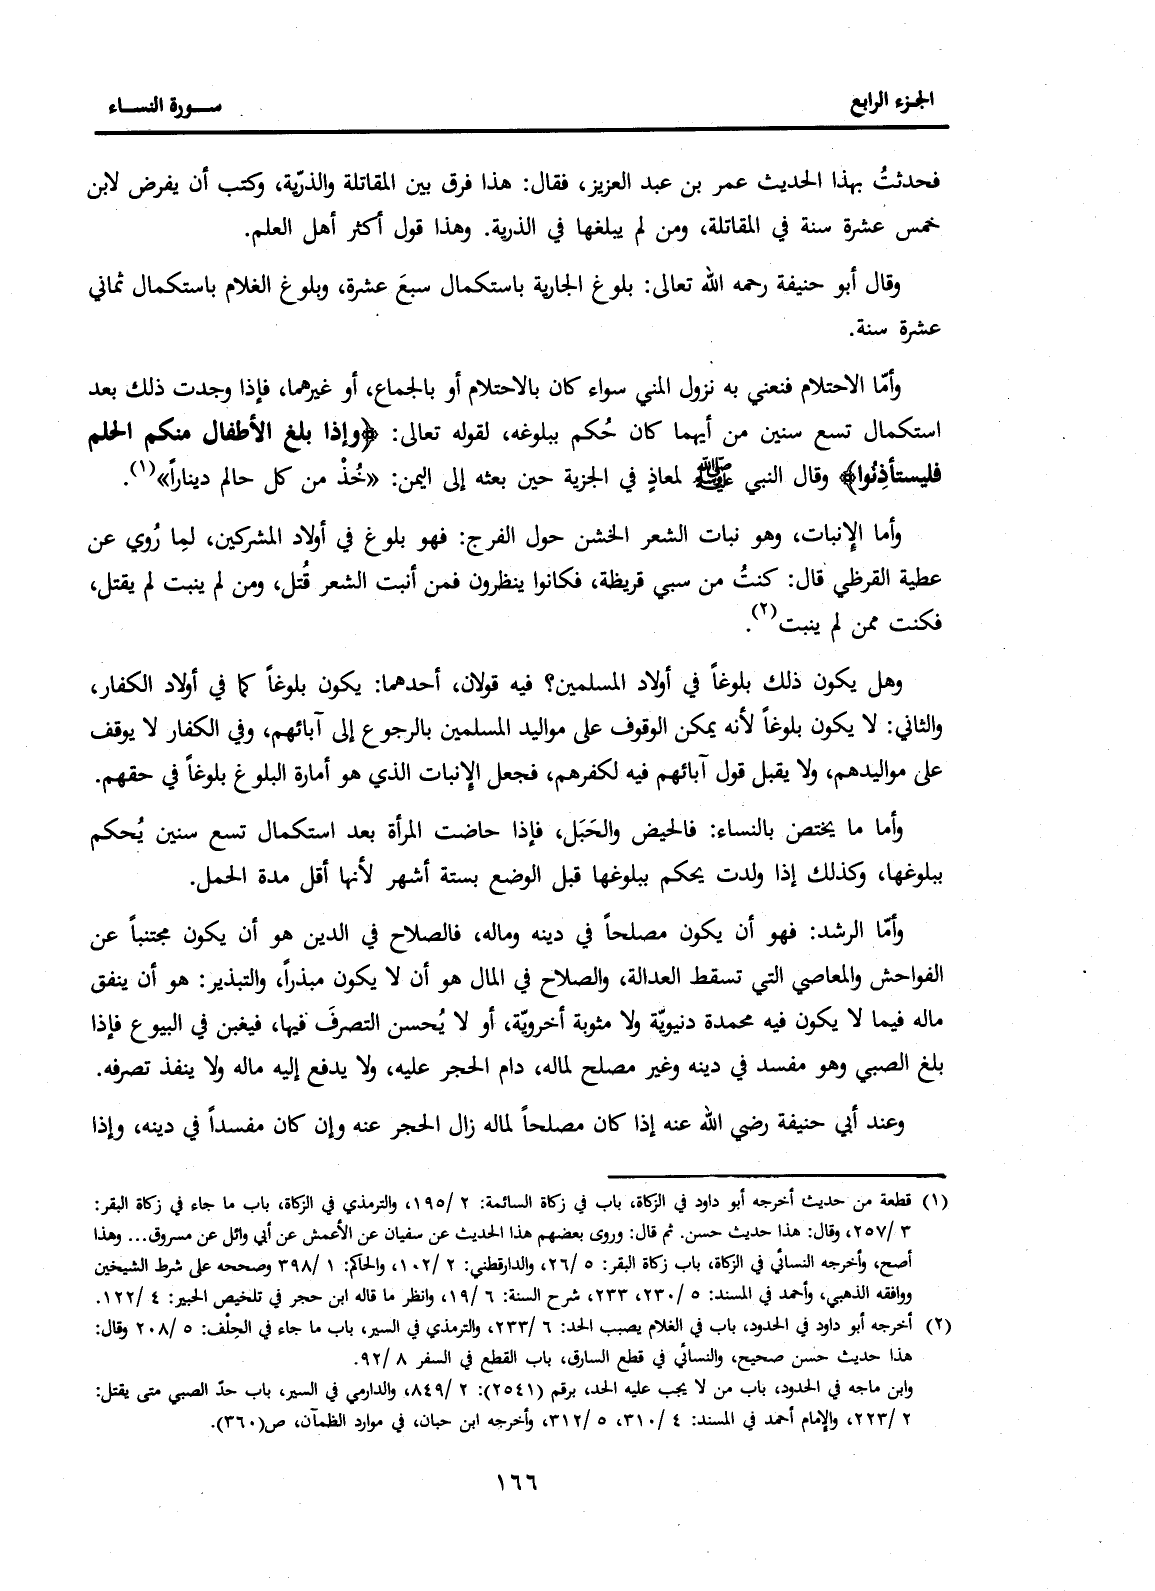 الجزء الرابع
سورة النساء
فحدثتُ بهذا الحديث عمر بن عبد العزيز، فقال: هذا فرق بين المقاتلة والذرّية، وكتب أن يفرض لابن
خمس عشرة سنة في المقاتلة، ومن لم يبلغها في الذرية. وهذا قول أكثر أهل العلم.
وقال أبو حنيفة رحمه الله تعالى: بلوغ الجارية باستكمال سبعَ عشرة، وبلوغ الغلام باستكمال ثماني
عشرة سنة.
وأمّا الاحتلام فنعني به نزول المني سواء كان بالاحتلام أو بالجماع، أو غيرهما، فإذا وجدت ذلك بعد
استكمال تسع سنين من أيهما كان حُكم ببلوغه، لقوله تعالى: ﴿وإذا بلغ الأطفال منكم الحلم
فليستأذِنُوا﴾ وقال النبي ﷺ لمعاذٍ في الجزية حين بعثه إلى اليمن: «خُذْ من كل حالم ديناراً»(١).
وأما الإنبات، وهو نبات الشعر الخشن حول الفرج: فهو بلوغ في أولاد المشركين، لمِا رُوي عن
عطية القرظي قال: كنتُ من سبي قريظة، فكانوا ينظرون فمن أنبت الشعر قُتل، ومن لم ينبت لم يقتل،
فكنت ممن لم ينبت(٢).
وهل يكون ذلك بلوغاً في أولاد المسلمين؟ فيه قولان، أحدهما: يكون بلوغاً كما في أولاد الكفار،
والثاني: لا يكون بلوغاً لأنه يمكن الوقوف على مواليد المسلمين بالرجوع إلى آبائهم، وفي الكفار لا يوقف
على مواليدهم، ولا يقبل قول آبائهم فيه لكفرهم، فجعل الإنبات الذي هو أمارة البلوغ بلوغاً في حقهم.
وأما ما يختص بالنساء: فالحيض والحَبَل، فإذا حاضت المرأة بعد استكمال تسع سنين يُحكم
ببلوغها، وكذلك إذا ولدت يحكم ببلوغها قبل الوضع بستة أشهر لأنها أقل مدة الحمل.
وأمّا الرشد: فهو أن يكون مصلحاً في دينه وماله، فالصلاح في الدين هو أن يكون مجتنباً عن
الفواحش والمعاصي التي تسقط العدالة، والصلاح في المال هو أن لا يكون مبذراً، والتبذير: هو أن ينفق
ماله فيما لا يكون فيه محمدة دنيويّة ولا مثوبة أخرويّة، أو لا يُحسن التصرفَ فيها، فيغبن في البيوع فإذا
بلغ الصبي وهو مفسد في دينه وغير مصلح لماله، دام الحجر عليه، ولا يدفع إليه ماله ولا ينفذ تصرفه.
وعند أبي حنيفة رضي الله عنه إذا كان مصلحاً لماله زال الحجر عنه وإن كان مفسداً في دينه، وإذا
(١) قطعة من حديث أخرجه أبو داود في الزكاة، باب في زكاة السائمة: ٢/ ١٩٥، والترمذي في الزكاة، باب ما جاء في زكاة البقر:
٣/ ٢٥٧، وقال: هذا حديث حسن. ثم قال: وروى بعضهم هذا الحديث عن سفيان عن الأعمش عن أبي وائل عن مسروق... وهذا
أصح، وأخرجه النسائي في الزكاة، باب زكاة البقر: ٥/ ٢٦، والدارقطني: ٢/ ١٠٢، والحاكم: ١/ ٣٩٨ وصححه على شرط الشيخين
ووافقه الذهبي، وأحمد في المسند: ٥/ ٢٣٠، ٢٣٣، شرح السنة: ٦/ ١٩، وانظر ما قاله ابن حجر في تلخيص الحبير: ٤/ ١٢٢.
(٢) أخرجه أبو داود في الحدود، باب في الغلام يصيب الحد: ٦/ ٢٣٣، والترمذي في السير، باب ما جاء في الحِلْف: ٥/ ٢٠٨ وقال:
هذا حديث حسن صحيح، والنسائي في قطع السارق، باب القطع في السفر ٨/ ٩٢.
وابن ماجه في الحدود، باب من لا يجب عليه الحد، برقم (٢٥٤١): ٢/ ٨٤٩، والدارمي في السير، باب حدّ الصبي متى يقتل:
٢/ ٢٢٣، والإمام أحمد في المسند: ٤/ ٣١٠، ٥/ ٣١٢، وأخرجه ابن حبان، في موارد الظمآن، ص(٣٦٠).
١٦٦